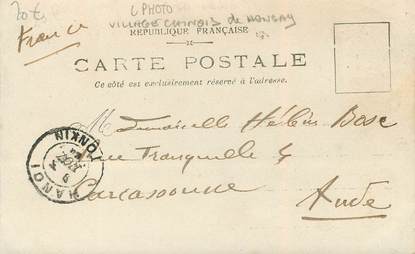 20 €
( PHOTO
VILLAGE CHINOIS de HONGAY
France
RÉPUBLIQUE FRANÇAISE
CARTE POSTALE
Ce côté est exclusivement réservé à l'adresse.
Mademoiselle Hélène Bosc
rue Tranquille 4
Carcassonne
Aude
HANOI TONKIN